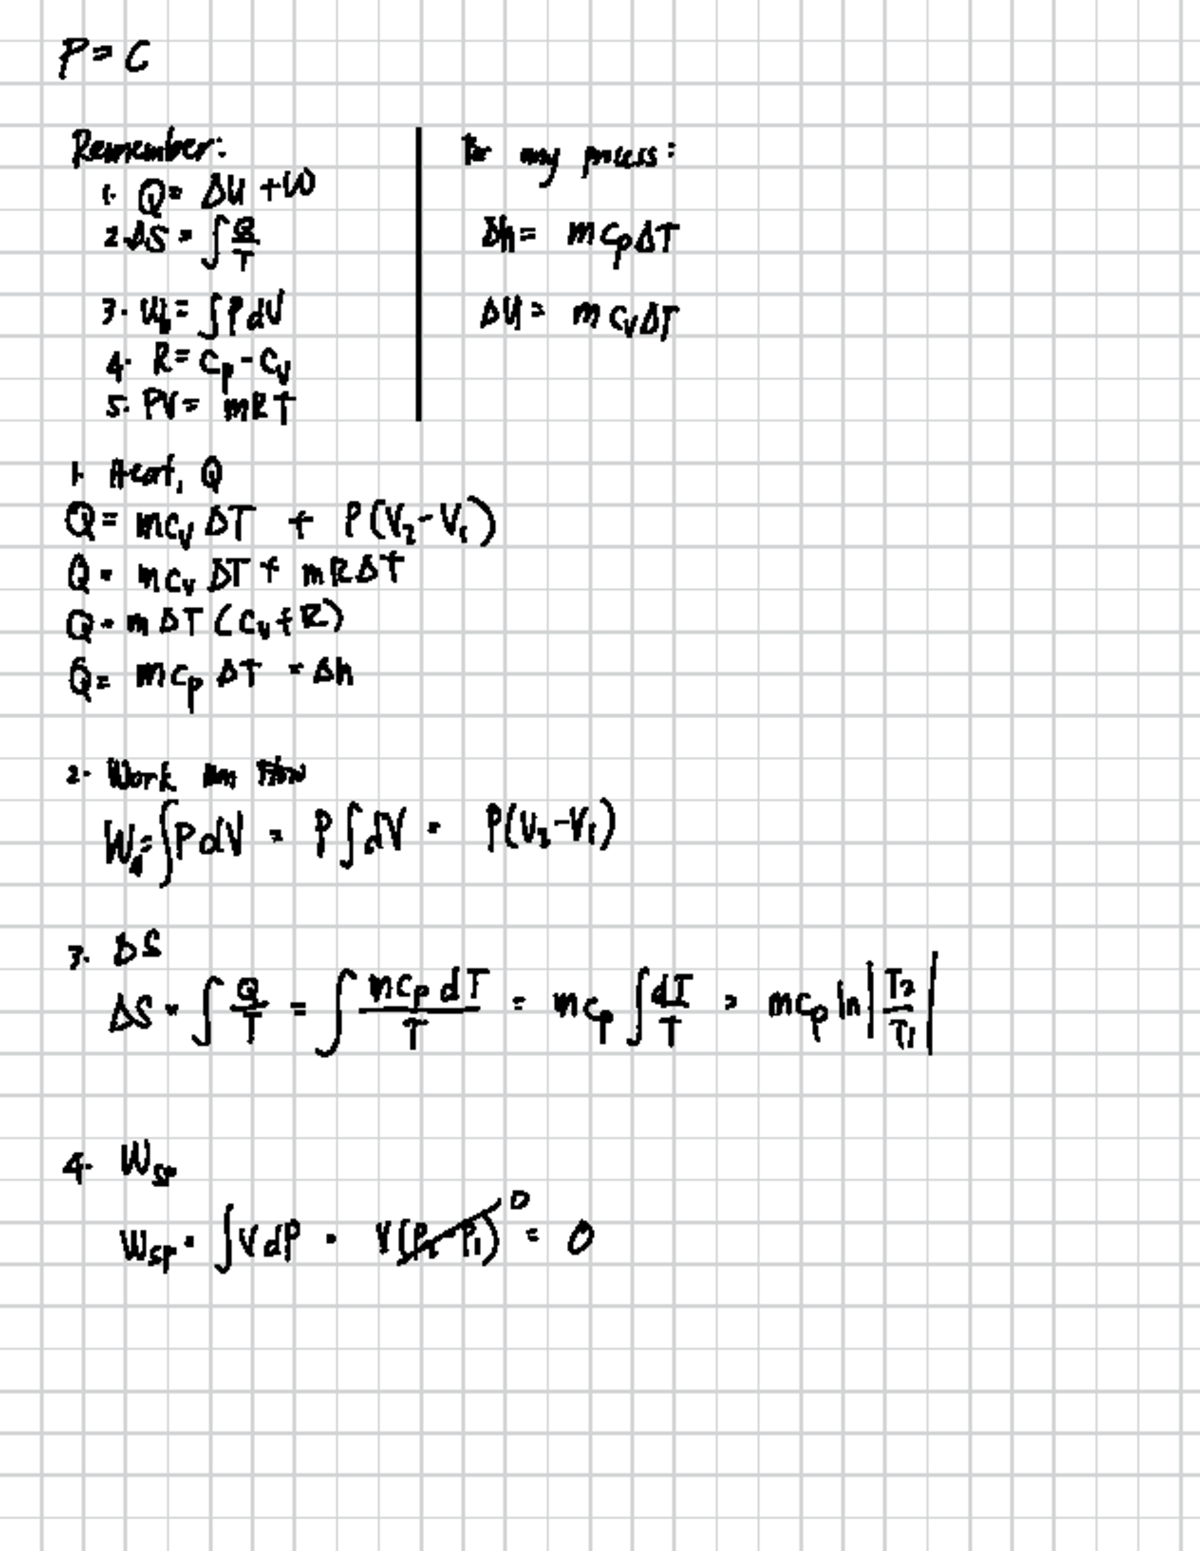 P = C
Remember:
1. Q = ΔU + W
2. ΔS = ∫ Q/T
3. W = ∫ P dV
4. R = Cp - Cv
5. PV = mRT
For any process:
Δh = m Cp ΔT
ΔU = m Cv ΔT
1. Heat, Q
Q = mCv ΔT + P(V2 - V1)
Q = mCv ΔT + mRΔT
Q = m ΔT (Cv + R)
Q = mCp ΔT = Δh
2. Work Non Flow
W = ∫ P dV = P ∫ dV = P(V2 - V1)
3. ΔS
ΔS = ∫ Q/T = ∫ mCp dT/T = mCp ∫ dT/T = mCp ln |T2/T1|
4. Wsp
Wsp = ∫ V dP = V(P2 - P1) 0 = 0